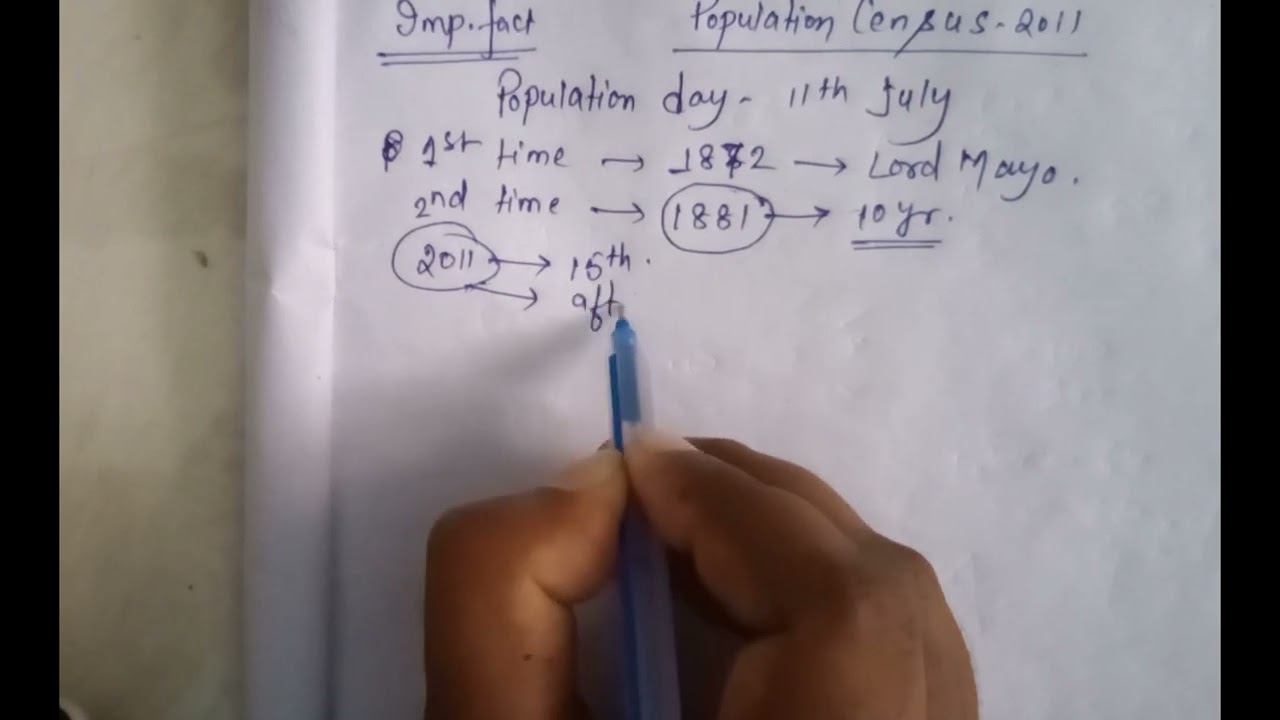 Imp. fact Population Census - 2011
Population day - 11th July
1st time → 1872 → Lord Mayo.
2nd time → 1881 → 10 yr.
2011 → 15th.
→ aft